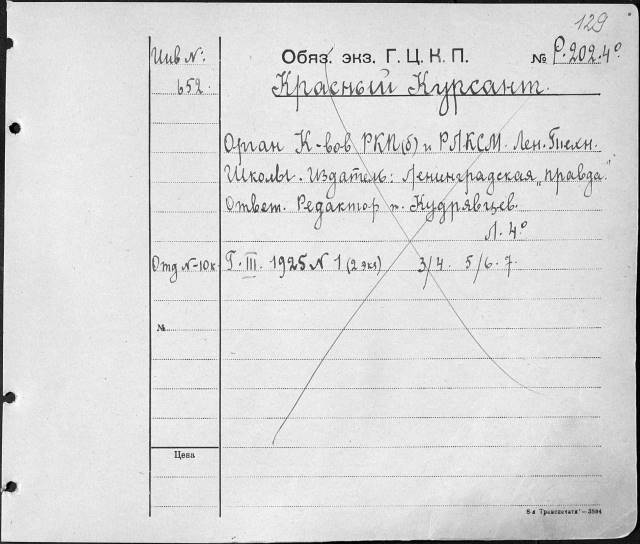 129
Инв №: Обяз. экз. Г. Ц. К. П. № Р.202.4°
652. Красный Курсант.
Орган К-вов РКП(б) и РЛКСМ. Лен. Техн.
Школы. Издатель: Ленинградская „правда“
Ответ. Редактор т. Кудрявцев.
Л. 4°
Отд №-10к. Г. III. 1925 № 1 (2 экз) 3/4. 5/6. 7.
№
Цена
8-я Транспечати—3594